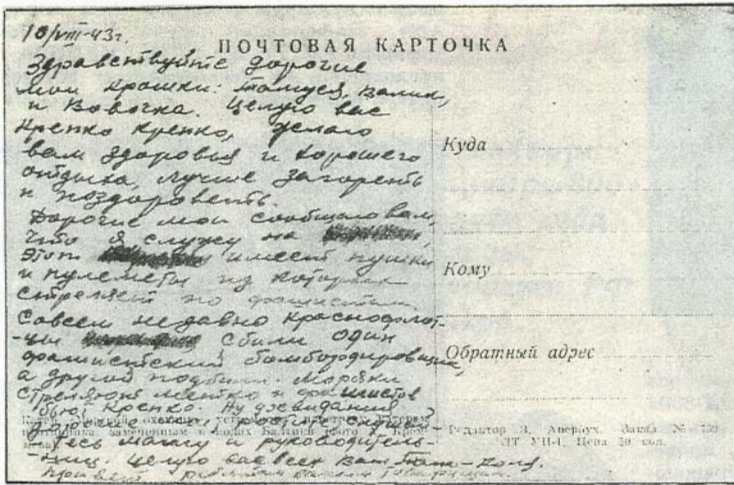 10/VIII-43г.
ПОЧТОВАЯ КАРТОЧКА
Здравствуйте дорогие
мои крошки: Валик,
и Вовочка. Целую вас
крепко крепко, желаю
вам здоровья и хорошего
отдыха, лучше загореть
и поздороветь.
Дорогие мои сообщаю вам,
что я служу на
этот имеет пушки
и пулеметы из которых
стреляет по фашистам.
Совсем недавно краснофлот-
-цы сбили один
фашистский бомбардировщик,
а другой подбили. Моряки
стреляют метко и фашистов
бьют крепко. Ну досвидания
мои
-тесь маму и руководитель-
-ниц. Целую вас всех Ваш Папа-Коля.
Привет
Куда
Кому
Обратный адрес
Редактор Э. Авербух. Заказ №
Цена 50 коп.